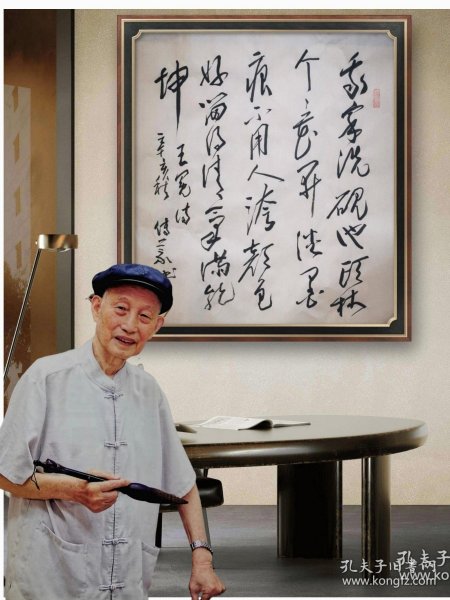 我家洗砚池头树
个个花开淡墨
痕不用人誇颜色
好留得清氣满乾
坤
王冕诗
辛亥秋
孔夫子旧书网
www.kongfz.com
孔夫子
www.ko